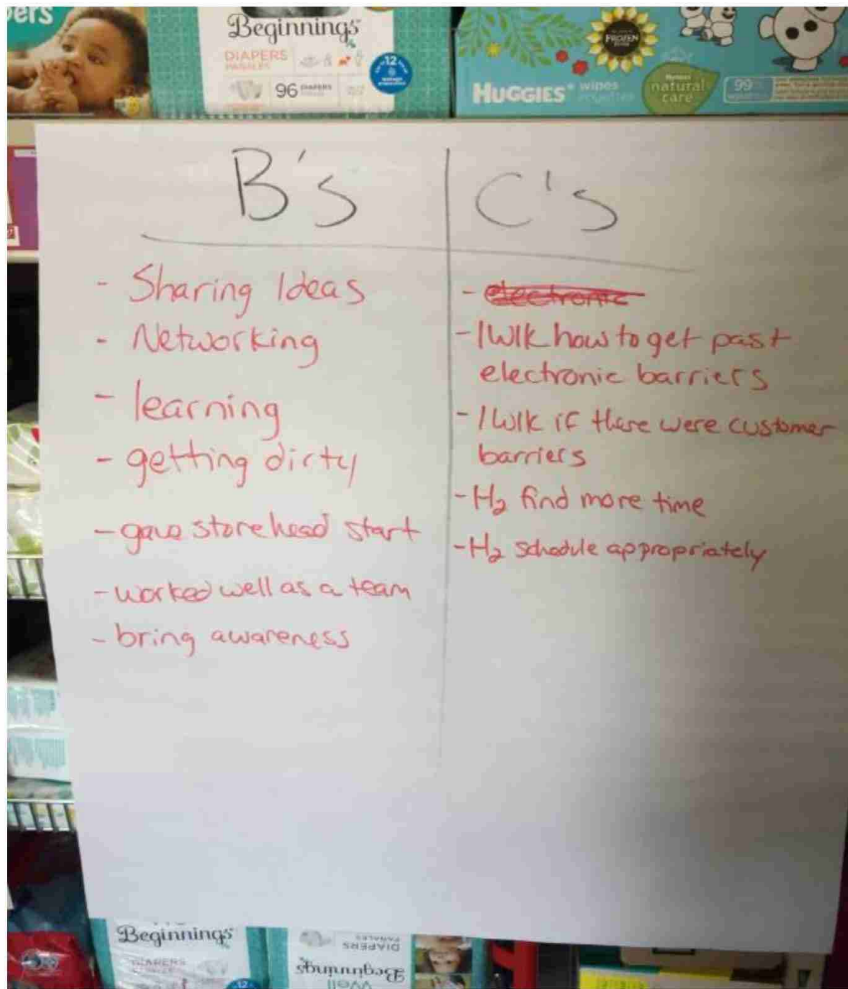 ers
Beginnings
DIAPERS
PAÑALES
96 DIAPERS
12
FROZEN
HUGGIES wipes
natural
care
99%
B's
C's
- Sharing Ideas
- Networking
- learning
- getting dirty
- gave store head start
- worked well as a team
- bring awareness
- electronic
- IWIK how to get past
electronic barriers
- IWIK if there were customer
barriers
- H2 find more time
- H2 schedule appropriately
Beginnings
DIAPERS
DIAPERS
PAÑALES
Beginnings
Well